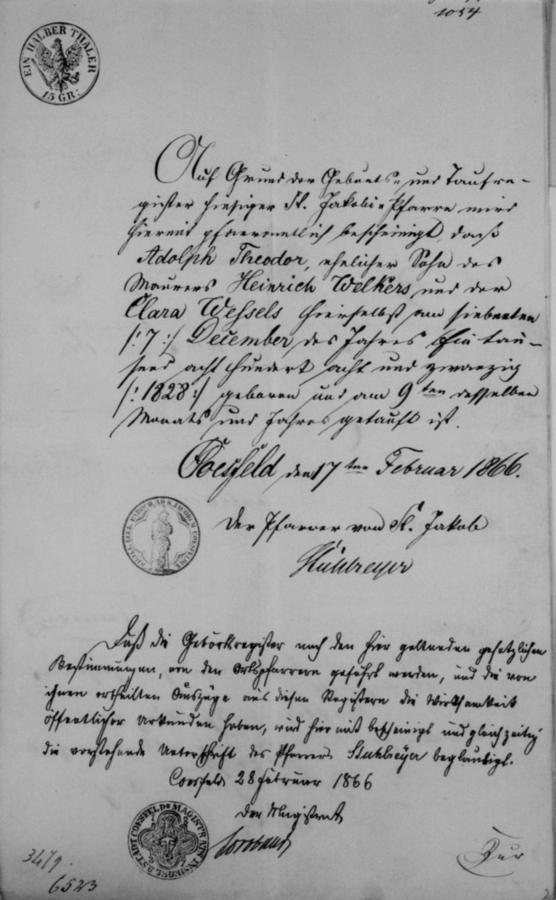 1054
EIN HALBER THALER
15 GR:
Auf Grund der Geburts- und Taufre-
gister hiesiger St. Jakobi-Pfarre wird
hiermit pfarramtlich bescheinigt, daß
Adolph Theodor, ehelicher Sohn des
Maurers Heinrich Welkers und der
Clara Wessels hierselbst am siebenten
/:7:/ December des Jahres Ein tau-
send acht hundert acht und zwanzig
/:1828:/ geboren und am 9ten desselben
Monats und Jahres getauft ist.
Coesfeld, den 17ten Februar 1866.
Der Pfarrer von St. Jakob
Daß die Geburtsregister nach den hier geltenden gesetzlichen
Bestimmungen, von den Ortspfarrern geführt werden, und die von
ihnen ertheilten Auszüge aus diesen Registern die Wirksamkeit
öffentlicher Urkunden haben, wird hiermit bescheinigt und gleichzeitig
die vorstehende Unterschrift des Pfarrers beglaubigt.
Coesfeld 28 Februar 1866
Der Magistrat
3479.
6523